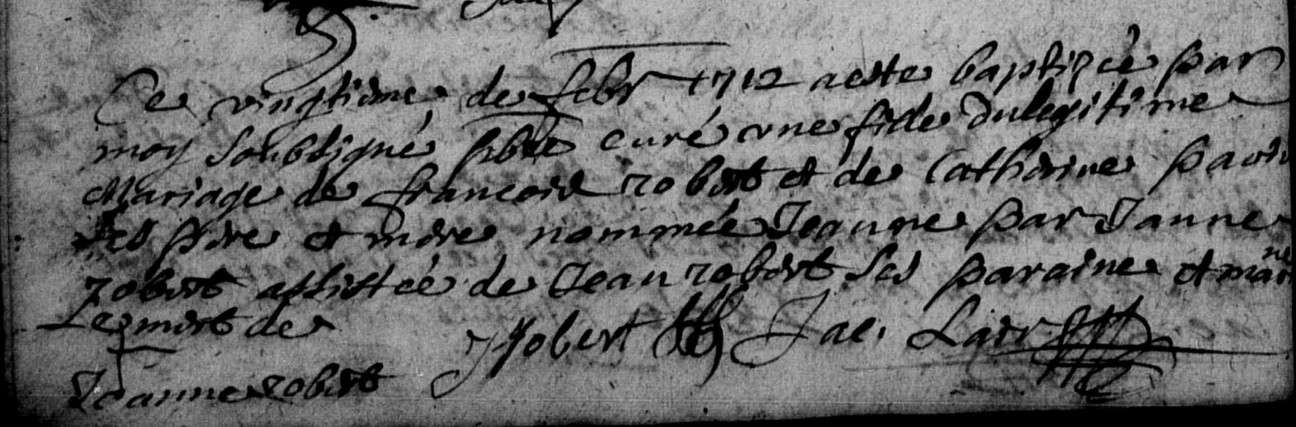 Ce vingtieme de febr 1712 a este baptizée par
moy soubsigné pbre curé une fide du legitime
Mariage de francois robert et de Catherine
ses pere et mere nommée Jeanne par Janne
robert assistée de Jean robert ses paraine et mar
ne
Le mert de
Jeanne robert
J robert Jac.